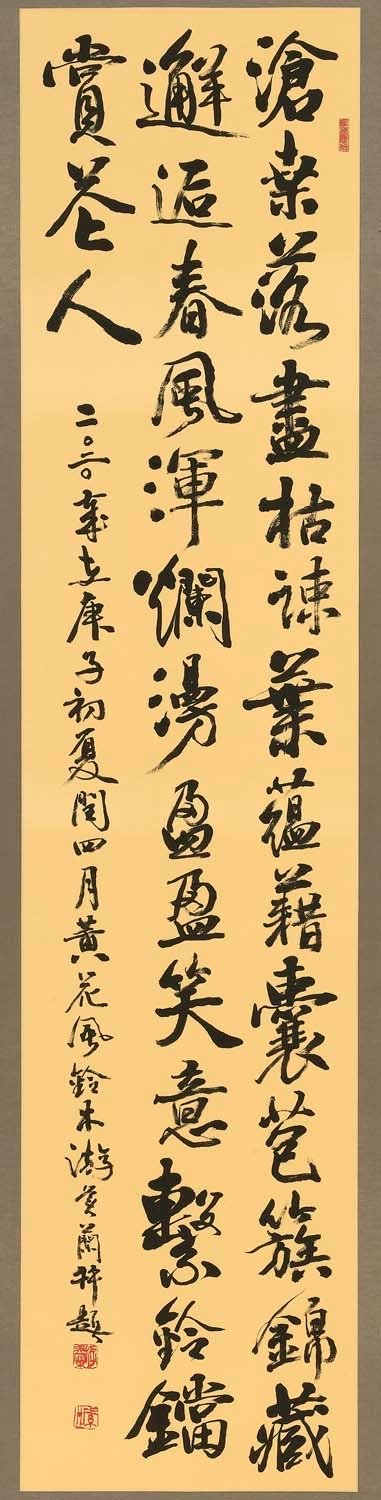 滄桑落盡枯疎葉蘊藉囊苞簇錦藏
邂逅春風渾爛漫盈盈笑意繫鈴鐺
賞花人
二〇二〇年在庚子初夏閏四月黃花風鈴木游黃蘭 題